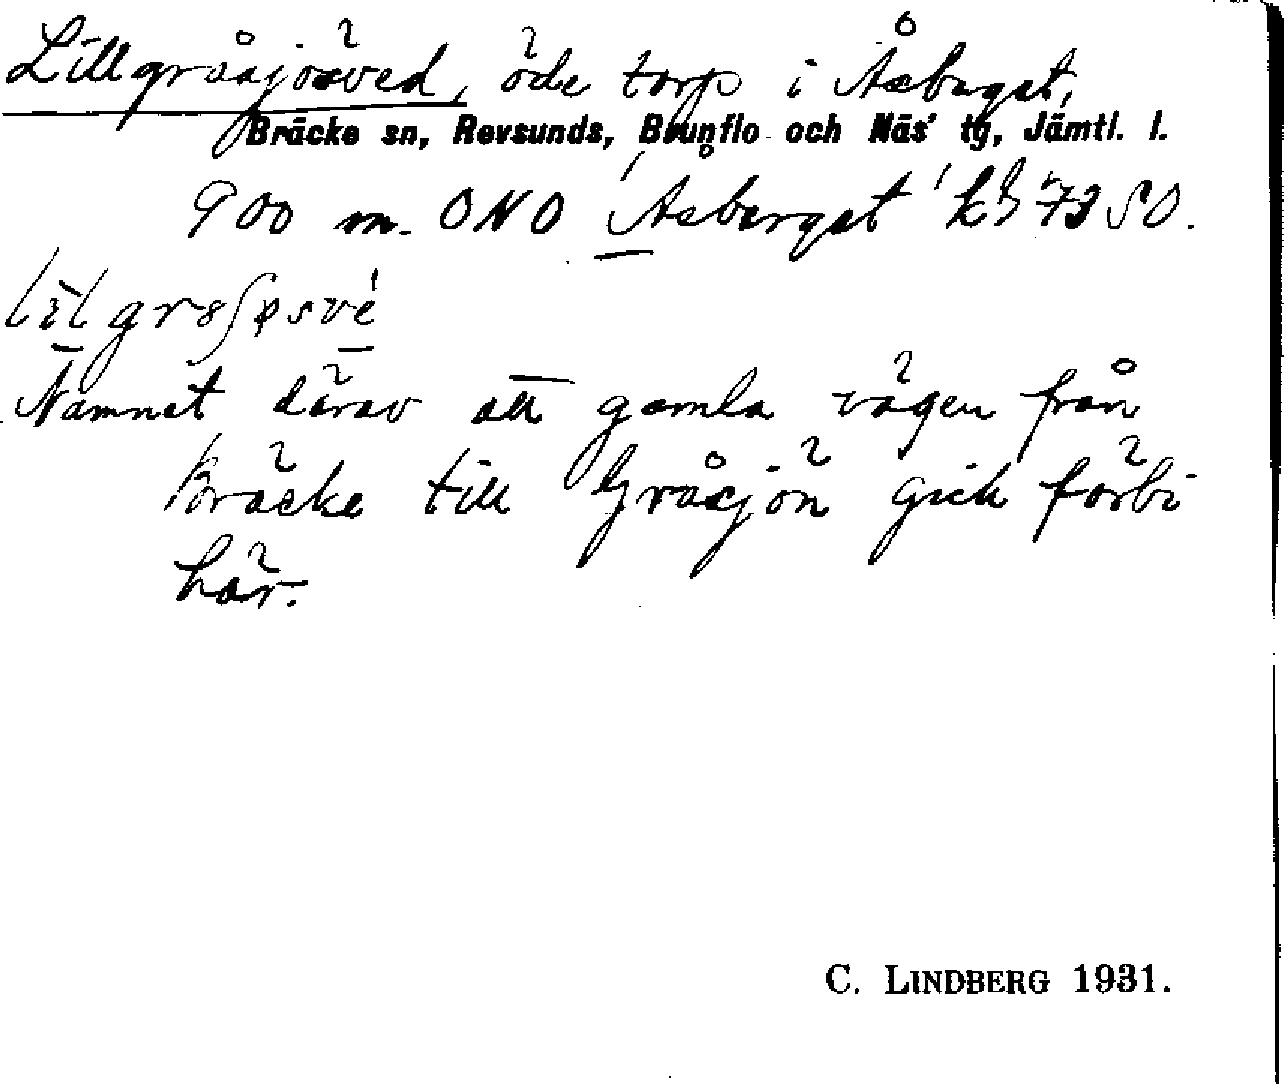 Lillgråsjöåsved, öde torp i Åsberget,
Bräcke sn, Revsunds, Brunflo och Näs' tg, Jämtl. l.
900 m. ONO 'Åsberget' kb 73 SO.
Namnet därav att gamla vägen från
Bräcke till Gråsjön gick förbi
här.
C. LINDBERG 1931.